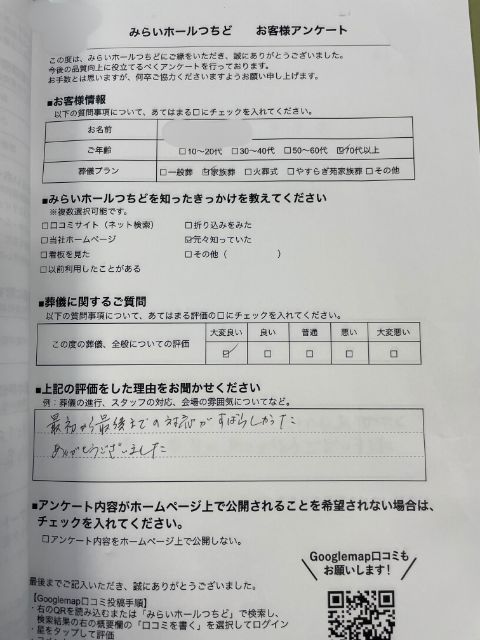 みらいホールつちど　　お客様アンケート
この度は、みらいホールつちどにご縁をいただき、誠にありがとうございました。
今後の品質向上に役立てるべくアンケートを行っております。
お手数とは思いますが、何卒ご協力くださいますようお願い申し上げます。
■お客様情報
以下の質問事項について、あてはまる□にチェックを入れてください。
お名前
ご年齢　□10～20代　□30～40代　□50～60代　☑70代以上
葬儀プラン　□一般葬　☑家族葬　□火葬式　□やすらぎ苑家族葬　□その他
■みらいホールつちどを知ったきっかけを教えてください
※複数選択可能です。
□口コミサイト（ネット検索）　□折り込みをみた
□当社ホームページ　☑元々知っていた
□看板を見た　□その他（　　　　　）
□以前利用したことがある
■葬儀に関するご質問
以下の質問事項について、あてはまる評価の□にチェックを入れてください。
大変良い　良い　普通　悪い　大変悪い
この度の葬儀、全般についての評価　☑　□　□　□　□
■上記の評価をした理由をお聞かせください
例：葬儀の進行、スタッフの対応、会場の雰囲気についてなど。
最初から最後までの対応がすばらしかった
ありがとうございました
■アンケート内容がホームページ上で公開されることを希望されない場合は、
チェックを入れてください。
□アンケート内容をホームページ上で公開しない。
Googlemap口コミも
お願いします！
最後までご記入いただき、誠にありがとうございました。
【Googlemap口コミ投稿手順】
・右のQRを読み込むまたは「みらいホールつちど」で検索し、
検索結果の右の概要欄の「口コミを書く」を選択してログイン
・星をタップして評価